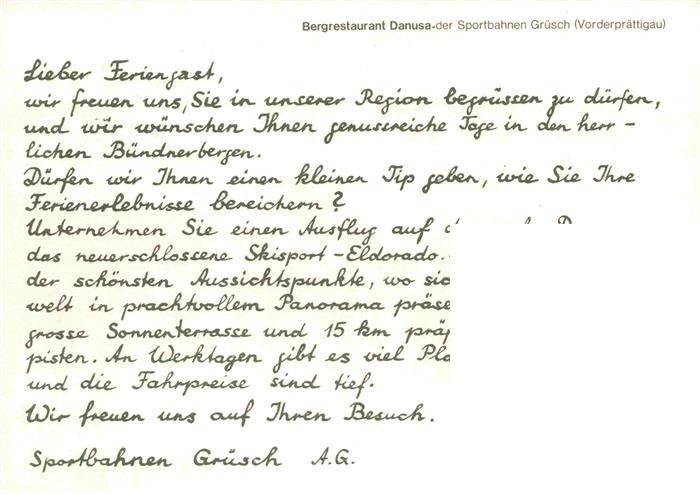 Bergrestaurant Danusa-der Sportbahnen Grüsch (Vorderprättigau)
Lieber Feriengast,
wir freuen uns, Sie in unserer Region begrüssen zu dürfen,
und wir wünschen Ihnen genussreiche Tage in den herr-
lichen Bündnerbergen.
Dürfen wir Ihnen einen kleinen Tip geben, wie Sie Ihre
Ferienerlebnisse bereichern?
Unternehmen Sie einen Ausflug auf
das neuerschlossene Skisport-Eldorado.
der schönsten Aussichtspunkte, wo
welt in prachtvollem Panorama
grosse Sonnenterrasse und 15 km
pisten. An Werktagen gibt es viel
und die Fahrpreise sind tief.
Wir freuen uns auf Ihren Besuch.
Sportbahnen Grüsch A.G.